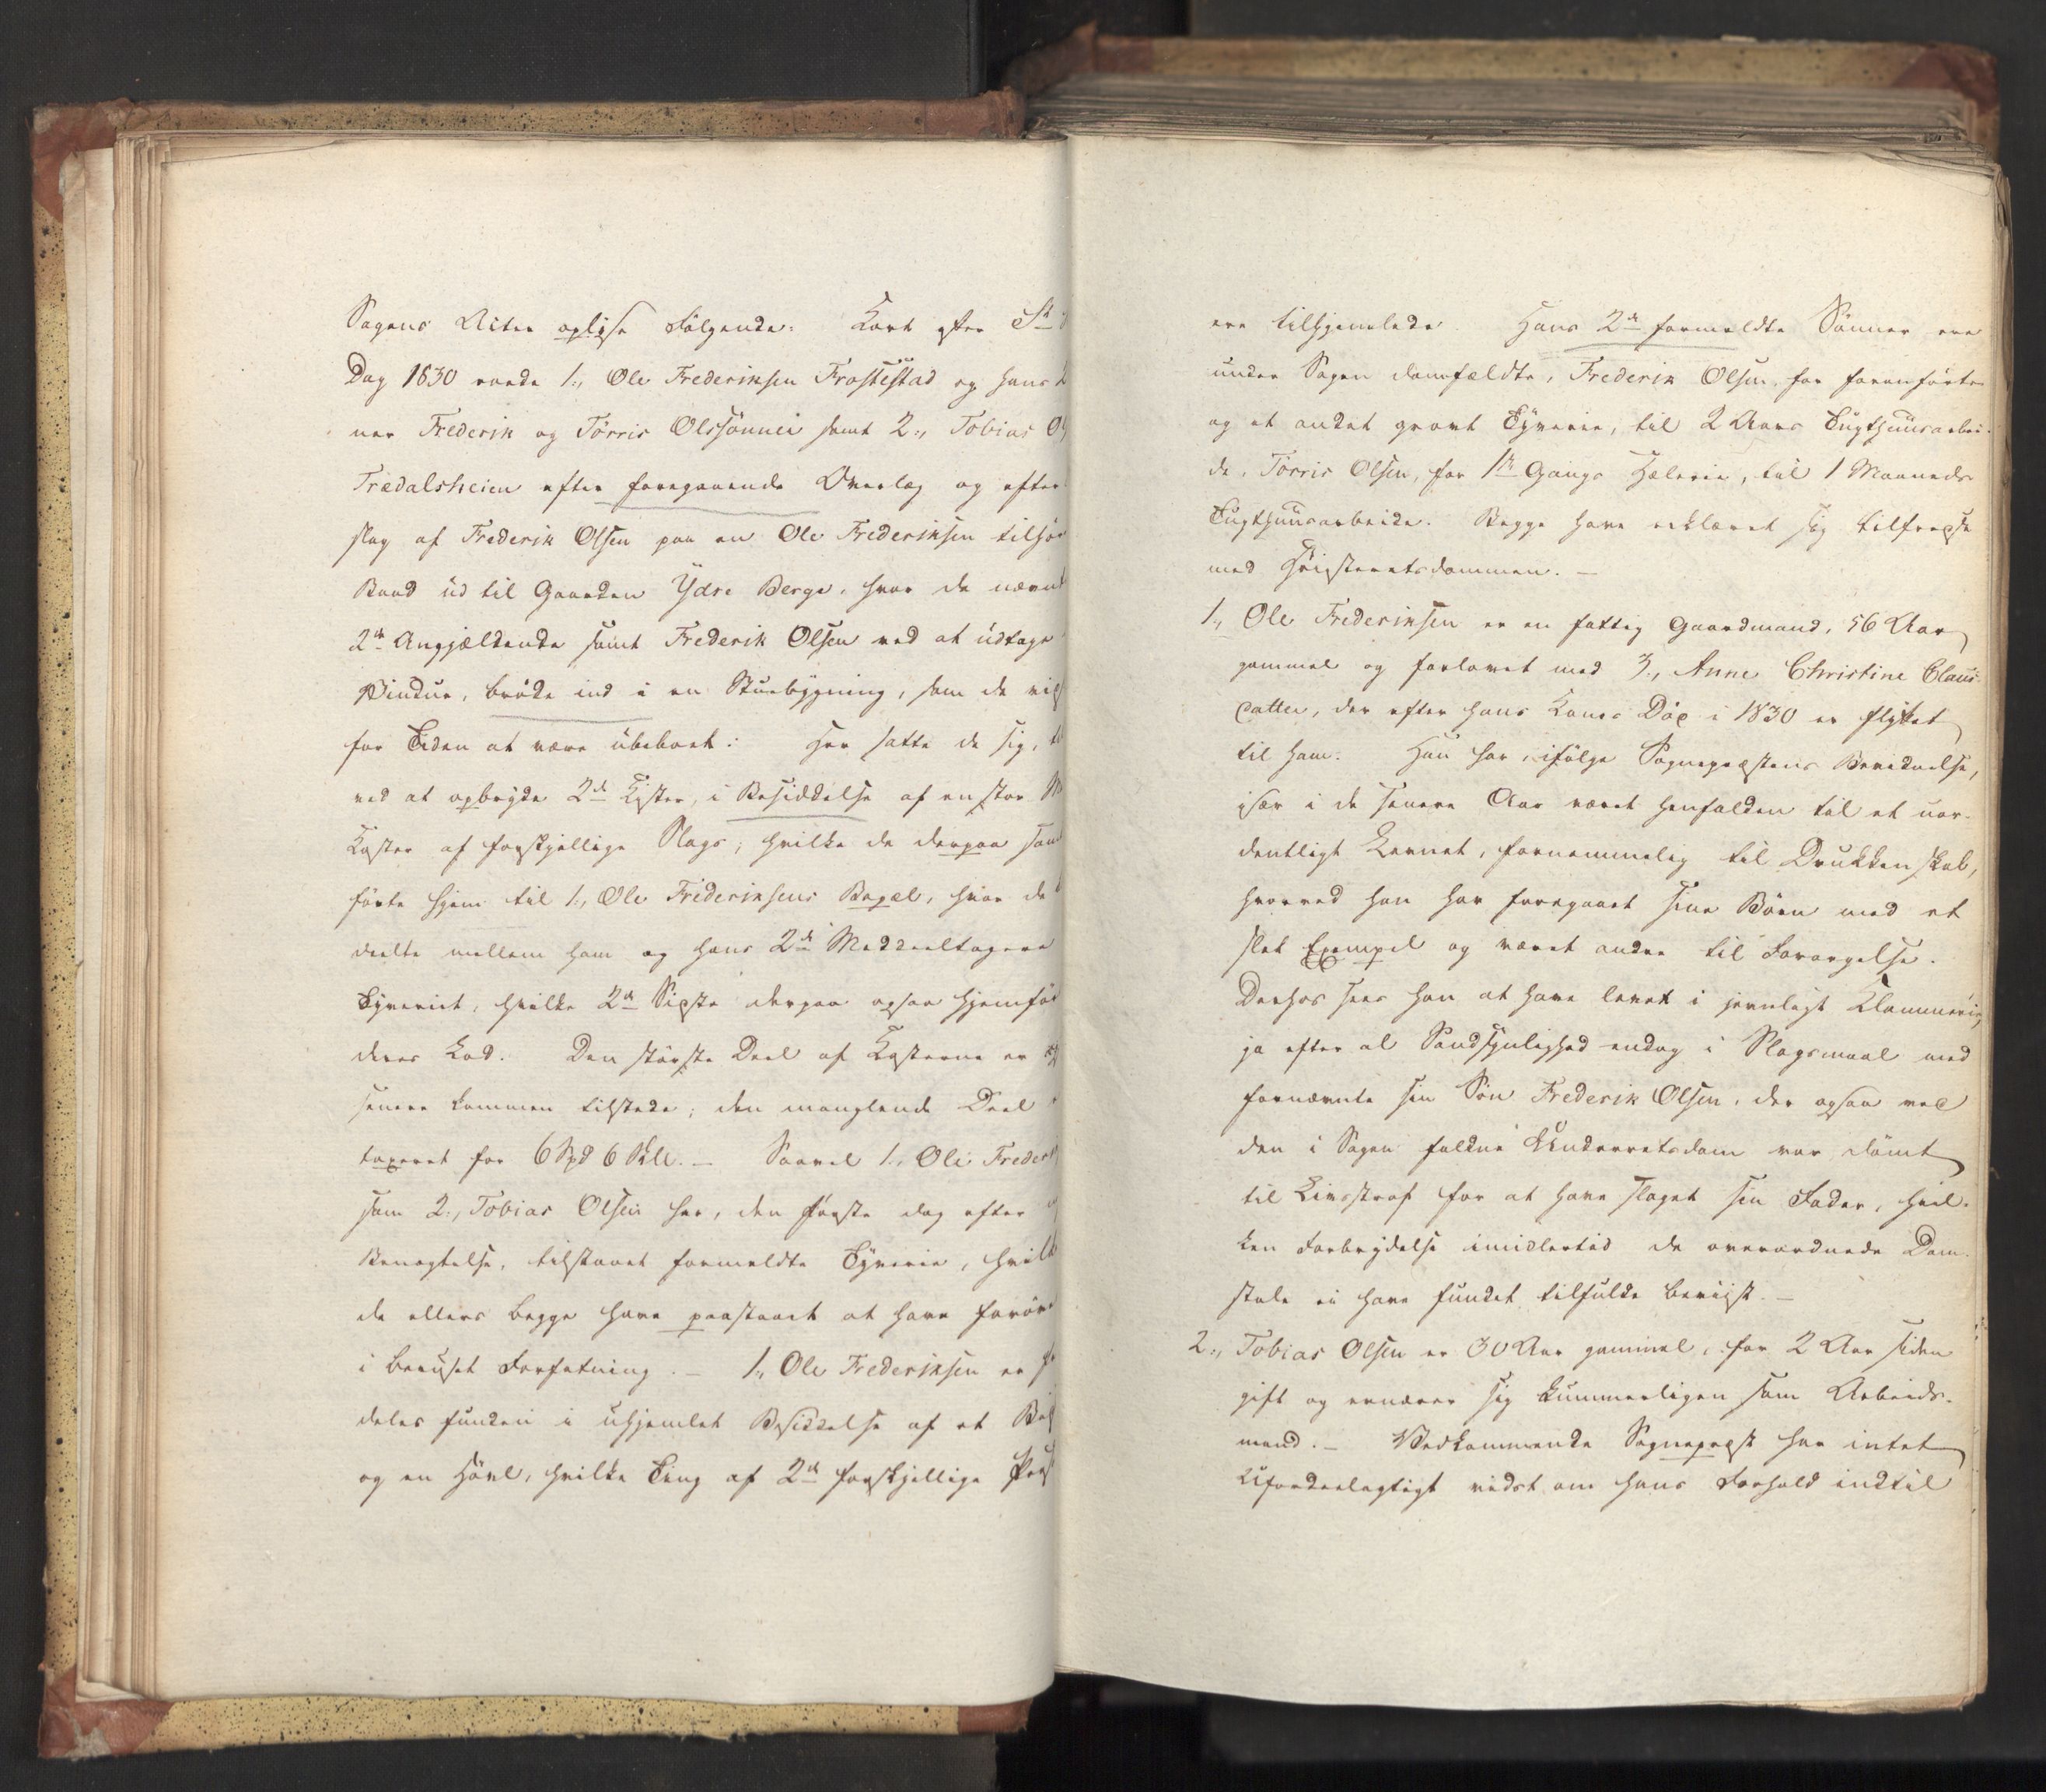 Sagens Acter oplyse Følgende: Kort efter St
Dag 1830 roede 1., Ole Frederiksen Frostestad og hans 2
ner Frederik og Törris Olssönner samt 2., Tobias Ol
Trædalsheien efter foregaaende Overlæg og efter
slag af Frederik Olsen paa en Ole Frederiksen tilhör
Baad ud til Gaarden Ydre Berge, hvor de nævnt
2de Angjældende samt Frederik Olsen ved at udtage
Vindue, bröde ind i en Stuebygning, som de vid
for Tiden at være ubeboet: Her satte de sig,
ved at opbryde 2de Kister, i Besiddelse af en stor M
Koster af forskjellige Slags; hvilke de derpaa sam
förte hjem til 1., Ole Frederiksens Bopæl, hvor de
deelte mellem ham og hans 2de Meddeeltagere
Tyveriet, hvilke 2de Sidste derpaa ogsaa hjemför
deres Lod. Den störste Deel af Kosterne er
senere kommen tilstede; den manglende Deel
taxeret for 6 Spd 6 Skl. — Saavel 1., Ole Frederik
som 2., Tobias Olsen har, den förste dog efter
Benegtelse, tilstaaet formeldte Tyverie, hvilk
de ellers begge have paastaaet at have foröv
i beruset Forfatning. — 1., Ole Frederiksen er
deles funden i uhjemlet Besiddelse af et
og en Hövl, hvilke Ting af 2de forskjellige Pers
ere tilhjemlede. Hans 2de formeldte Sönner ere
under Sagen domfældte, Frederik Olsen, for foranförte
og et andet grovt Tyverie, til 2 Aars Tugthuusarbei-
de, Törris Olsen, for 1ste Gangs Hælerie, til 1 Maaneds
Tugthuusarbeide. Begge have erklæret sig tilfredse
med Höiesteretsdommen. —
1., Ole Frederiksen er en fattig Gaardmand, 56 Aar
gammel og forlovet med 3., Anne Christine Claus-
datter, der efter hans Kones Död i 1830 er flyttet
til ham. Han har, ifölge Sognepræstens Bevidnelse,
især i de senere Aar været henfalden til et uor-
dentligt Levnet, fornemmelig til Drukkenskab,
hvorved han har foregaaet sine Börn med et
slet Exempel og været andre til Forargelse.
Derhos sees han at have levet i jevnligt Klammerie,
ja efter al Sandsynlighed endog i Slagsmaal med
fornævnte sin Sön Frederik Olsen, der ogsaa ved
den i Sagen faldne Underretsdom var dömt
til Livsstraf for at have slaget sin Fader, hvil-
ken Forbrydelse imidlertid de overordnede Dom-
stole ei have fundet tilfulde beviist. —
2., Tobias Olsen er 30 Aar gammel, for 2 Aar siden
gift og ernærer sig kummerligen som Arbeids-
mand. — Vedkommende Sognepræst har intet
Ufordeelagtigt vidst om hans Forhold indtil